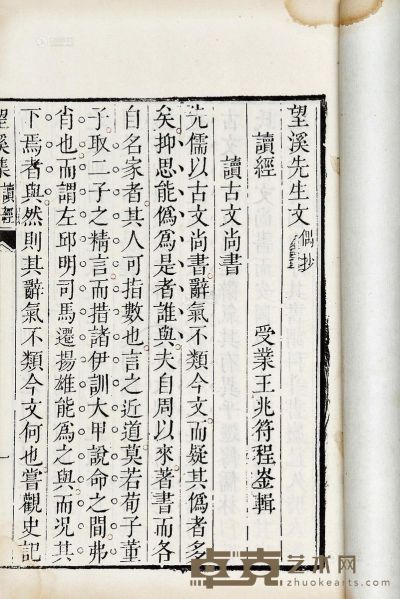 望溪先生文偶抄
讀經
受業王兆符程崟輯
讀古文尚書
先儒以古文尚書辭氣不類今文而疑其偽者多
矣抑思能偽為是者誰與夫自周以來著書而各
自名家者其人可指數也言之近道莫若荀子董
子取二子之精言而措諸伊訓大甲說命之間弗
肖也而謂左邱明司馬遷揚雄能為之與而況其
下焉者與然則其辭氣不類今文何也嘗觀史記
望溪集
讀經
一
卓克艺术网
zhuokearts.com